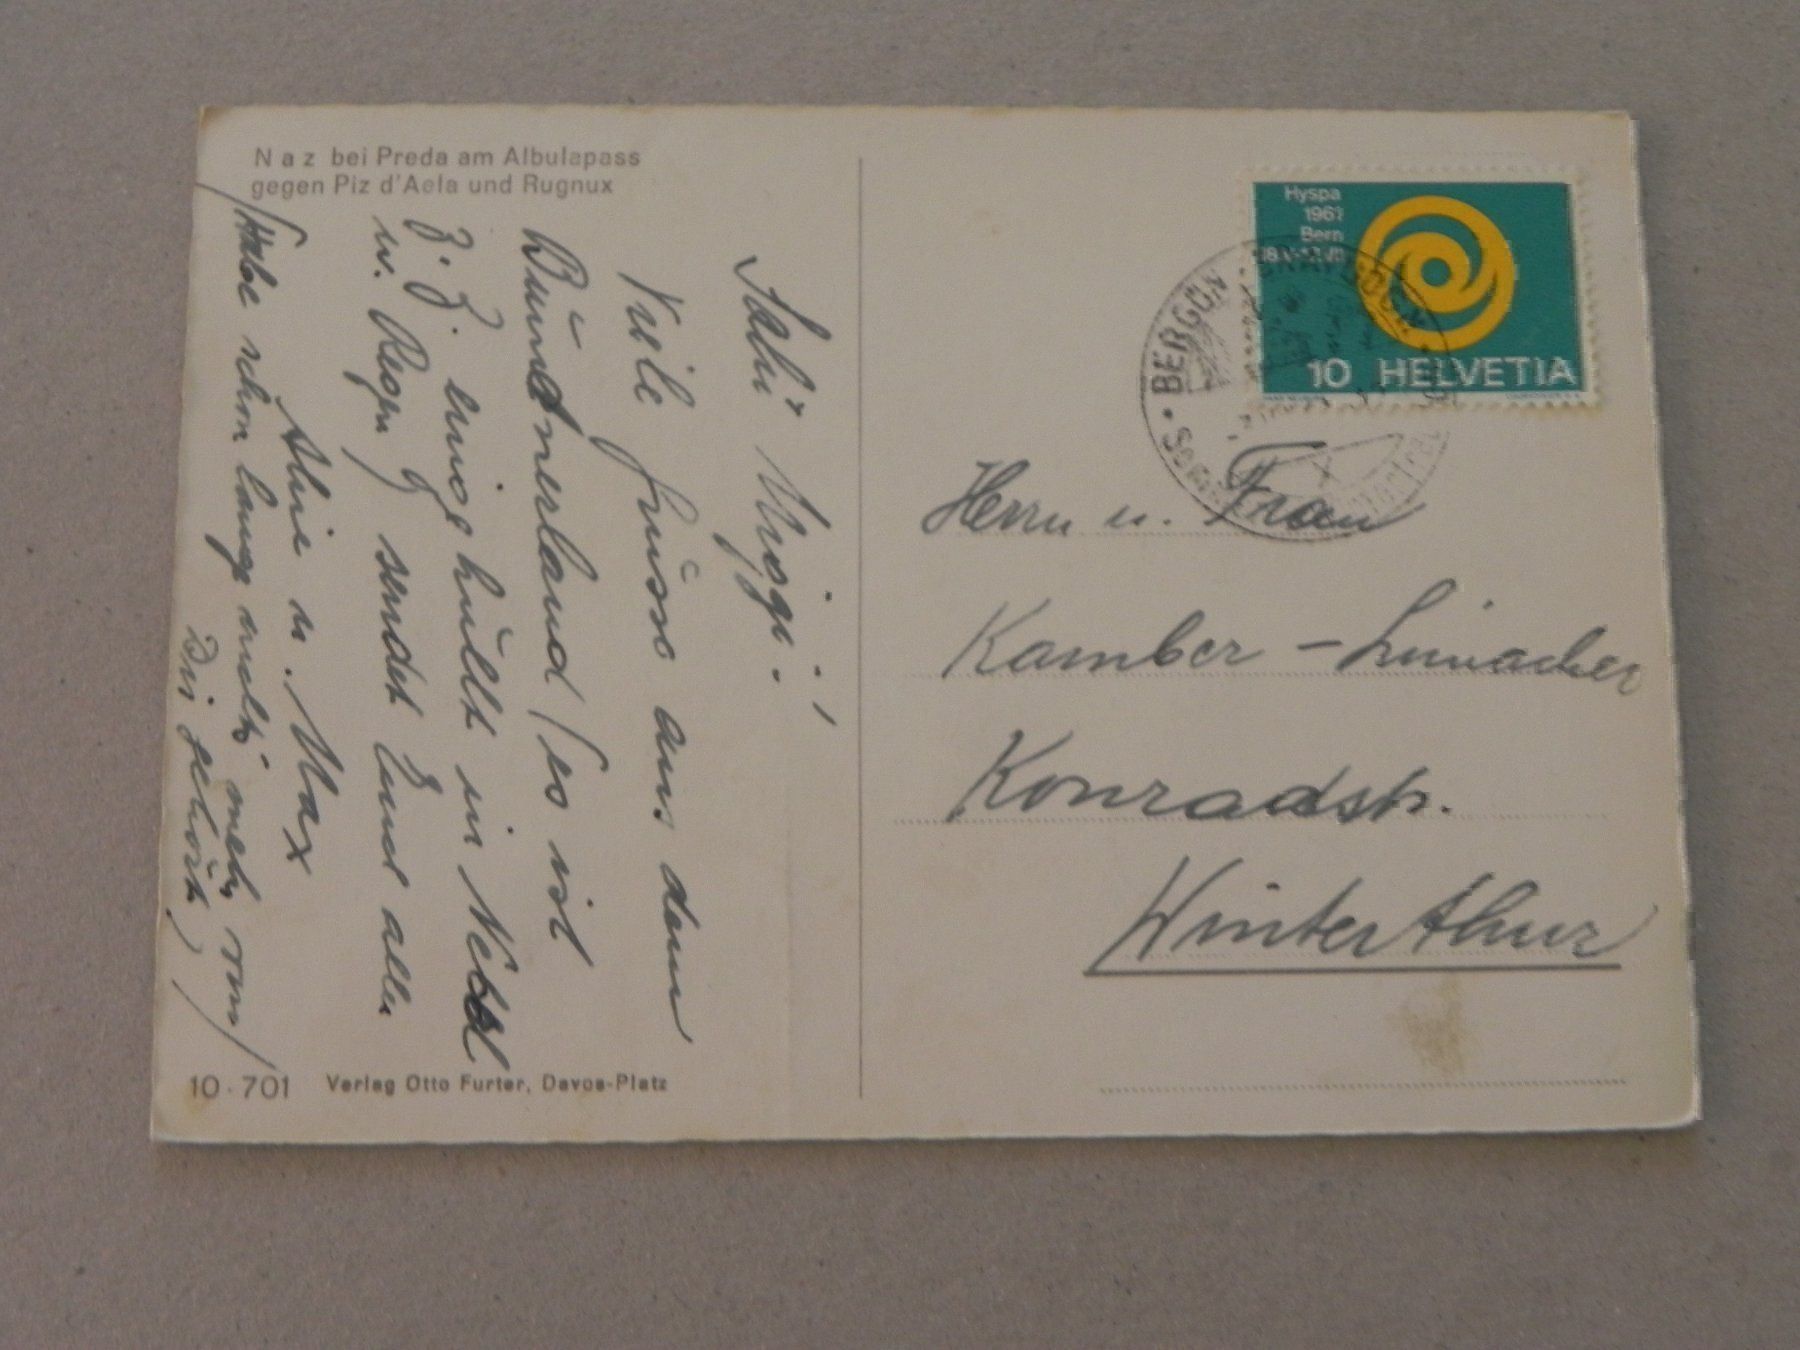 Naz bei Preda am Albulapass
gegen Piz d'Aela und Rugnux
Sali
Viele Grüsse aus dem
Bündnerland (es ist
z. Z. eingehüllt in Nebel
u. Regen) sendet Euch allen
u. Max
(Habe schon lange nichts mehr von
Dir gehört)
10-701 Verlag Otto Furter, Davos-Platz
Hyspa
1961
Bern
10 HELVETIA
BERGÜN
Herrn u. Frau
Kamber -
Konradstr.
Winterthur